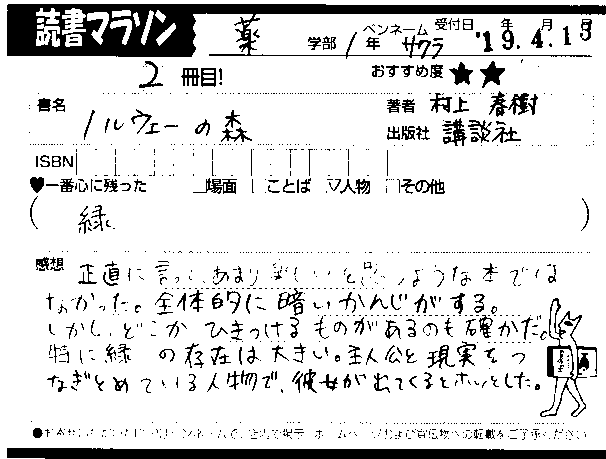 読書マラソン 薬 学部 1年 ペンネーム サクラ 受付日 '19年4月13日
2 冊目! おすすめ度 ★★
書名 ノルウェーの森
著者 村上 春樹
出版社 講談社
ISBN
♥一番心に残った □場面 □ことば ☑人物 □その他
( 緑 )
感想 正直に言って、あまり楽しいと思うような本では
なかった。全体的に暗いかんじがする。
しかし、どこか ひきつけるものがあるのも確かだ。
特に緑 の存在は大きい。主人公と現実をつ
なぎとめている人物で、彼女が出てくるとホッとした。